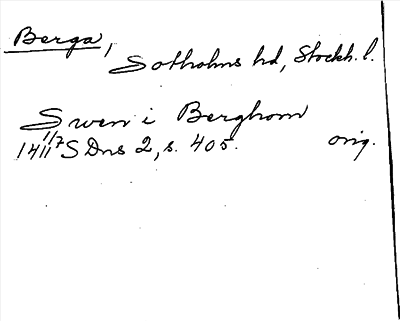 Berga,
Sotholms hd, Stockh. l.
Swen i Berghom
1411 1/7 S Dns 2, s. 405. orig.